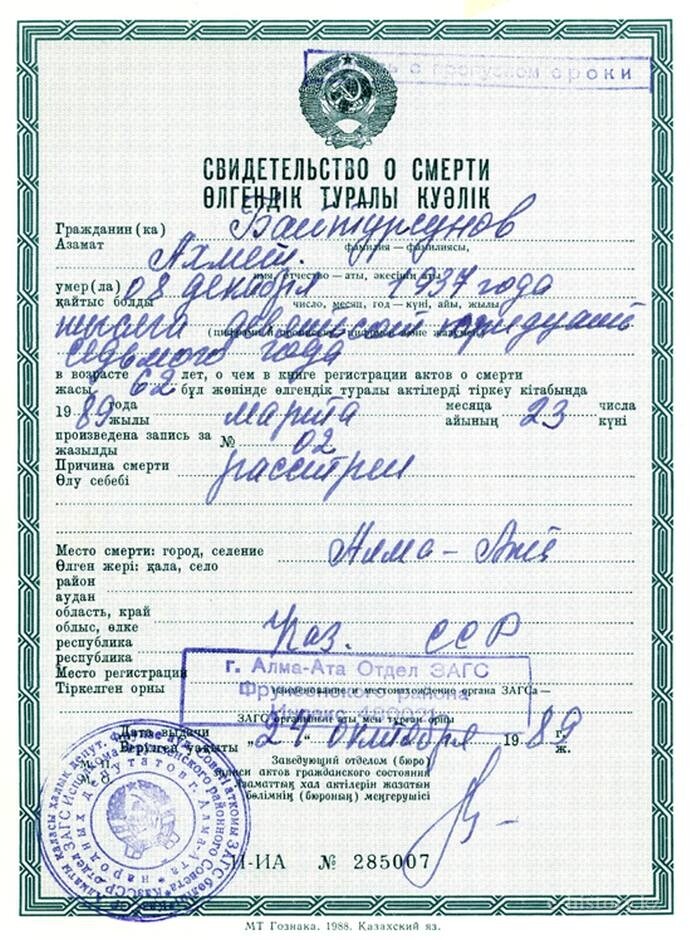 с пропуском сроки
СВИДЕТЕЛЬСТВО О СМЕРТИ
ӨЛГЕНДІК ТУРАЛЫ КУӘЛІК
Гражданин (ка) Байтурсунов
Азамат фамилия — фамилиясы,
Ахмет.
имя, отчество — аты, әкесінің аты
умер(ла) 08 декабря 1937 года
қайтыс болды число, месяц, год — күні, айы, жылы
тысяча девятьсот тридцать
(цифрами и прописью — цифрмен және жазумен)
седьмого года
в возрасте 62 лет, о чем в книге регистрации актов о смерти
жасы бұл жөнінде өлгендік туралы актілерді тіркеу кітабында
19 89 года марта месяца 23 числа
жылы айының күні
произведена запись за № 02
жазылды
Причина смерти расстрел
Өлу себебі
Место смерти: город, селение Алма-Ата
Өлген жері: қала, село
район
аудан
область, край
облыс, өлке
республика Каз. ССР
республика
Место регистрации
Тіркелген орны наименование и местонахождение органа ЗАГСа —
г. Алма-Ата Отдел ЗАГС
Фрунзенского района
Индекс
ЗАГС органының аты мен тұрған орны
Дата выдачи „24“ октября 19 89 г.
Берілген уақыты ж.
Заведующий отделом (бюро)
записи актов гражданского состояния
Азаматтық хал актілерін жазатын
бөлімнің (бюроның) меңгерушісі
II-ИА № 285007
МТ Гознака. 1988. Казахский яз.